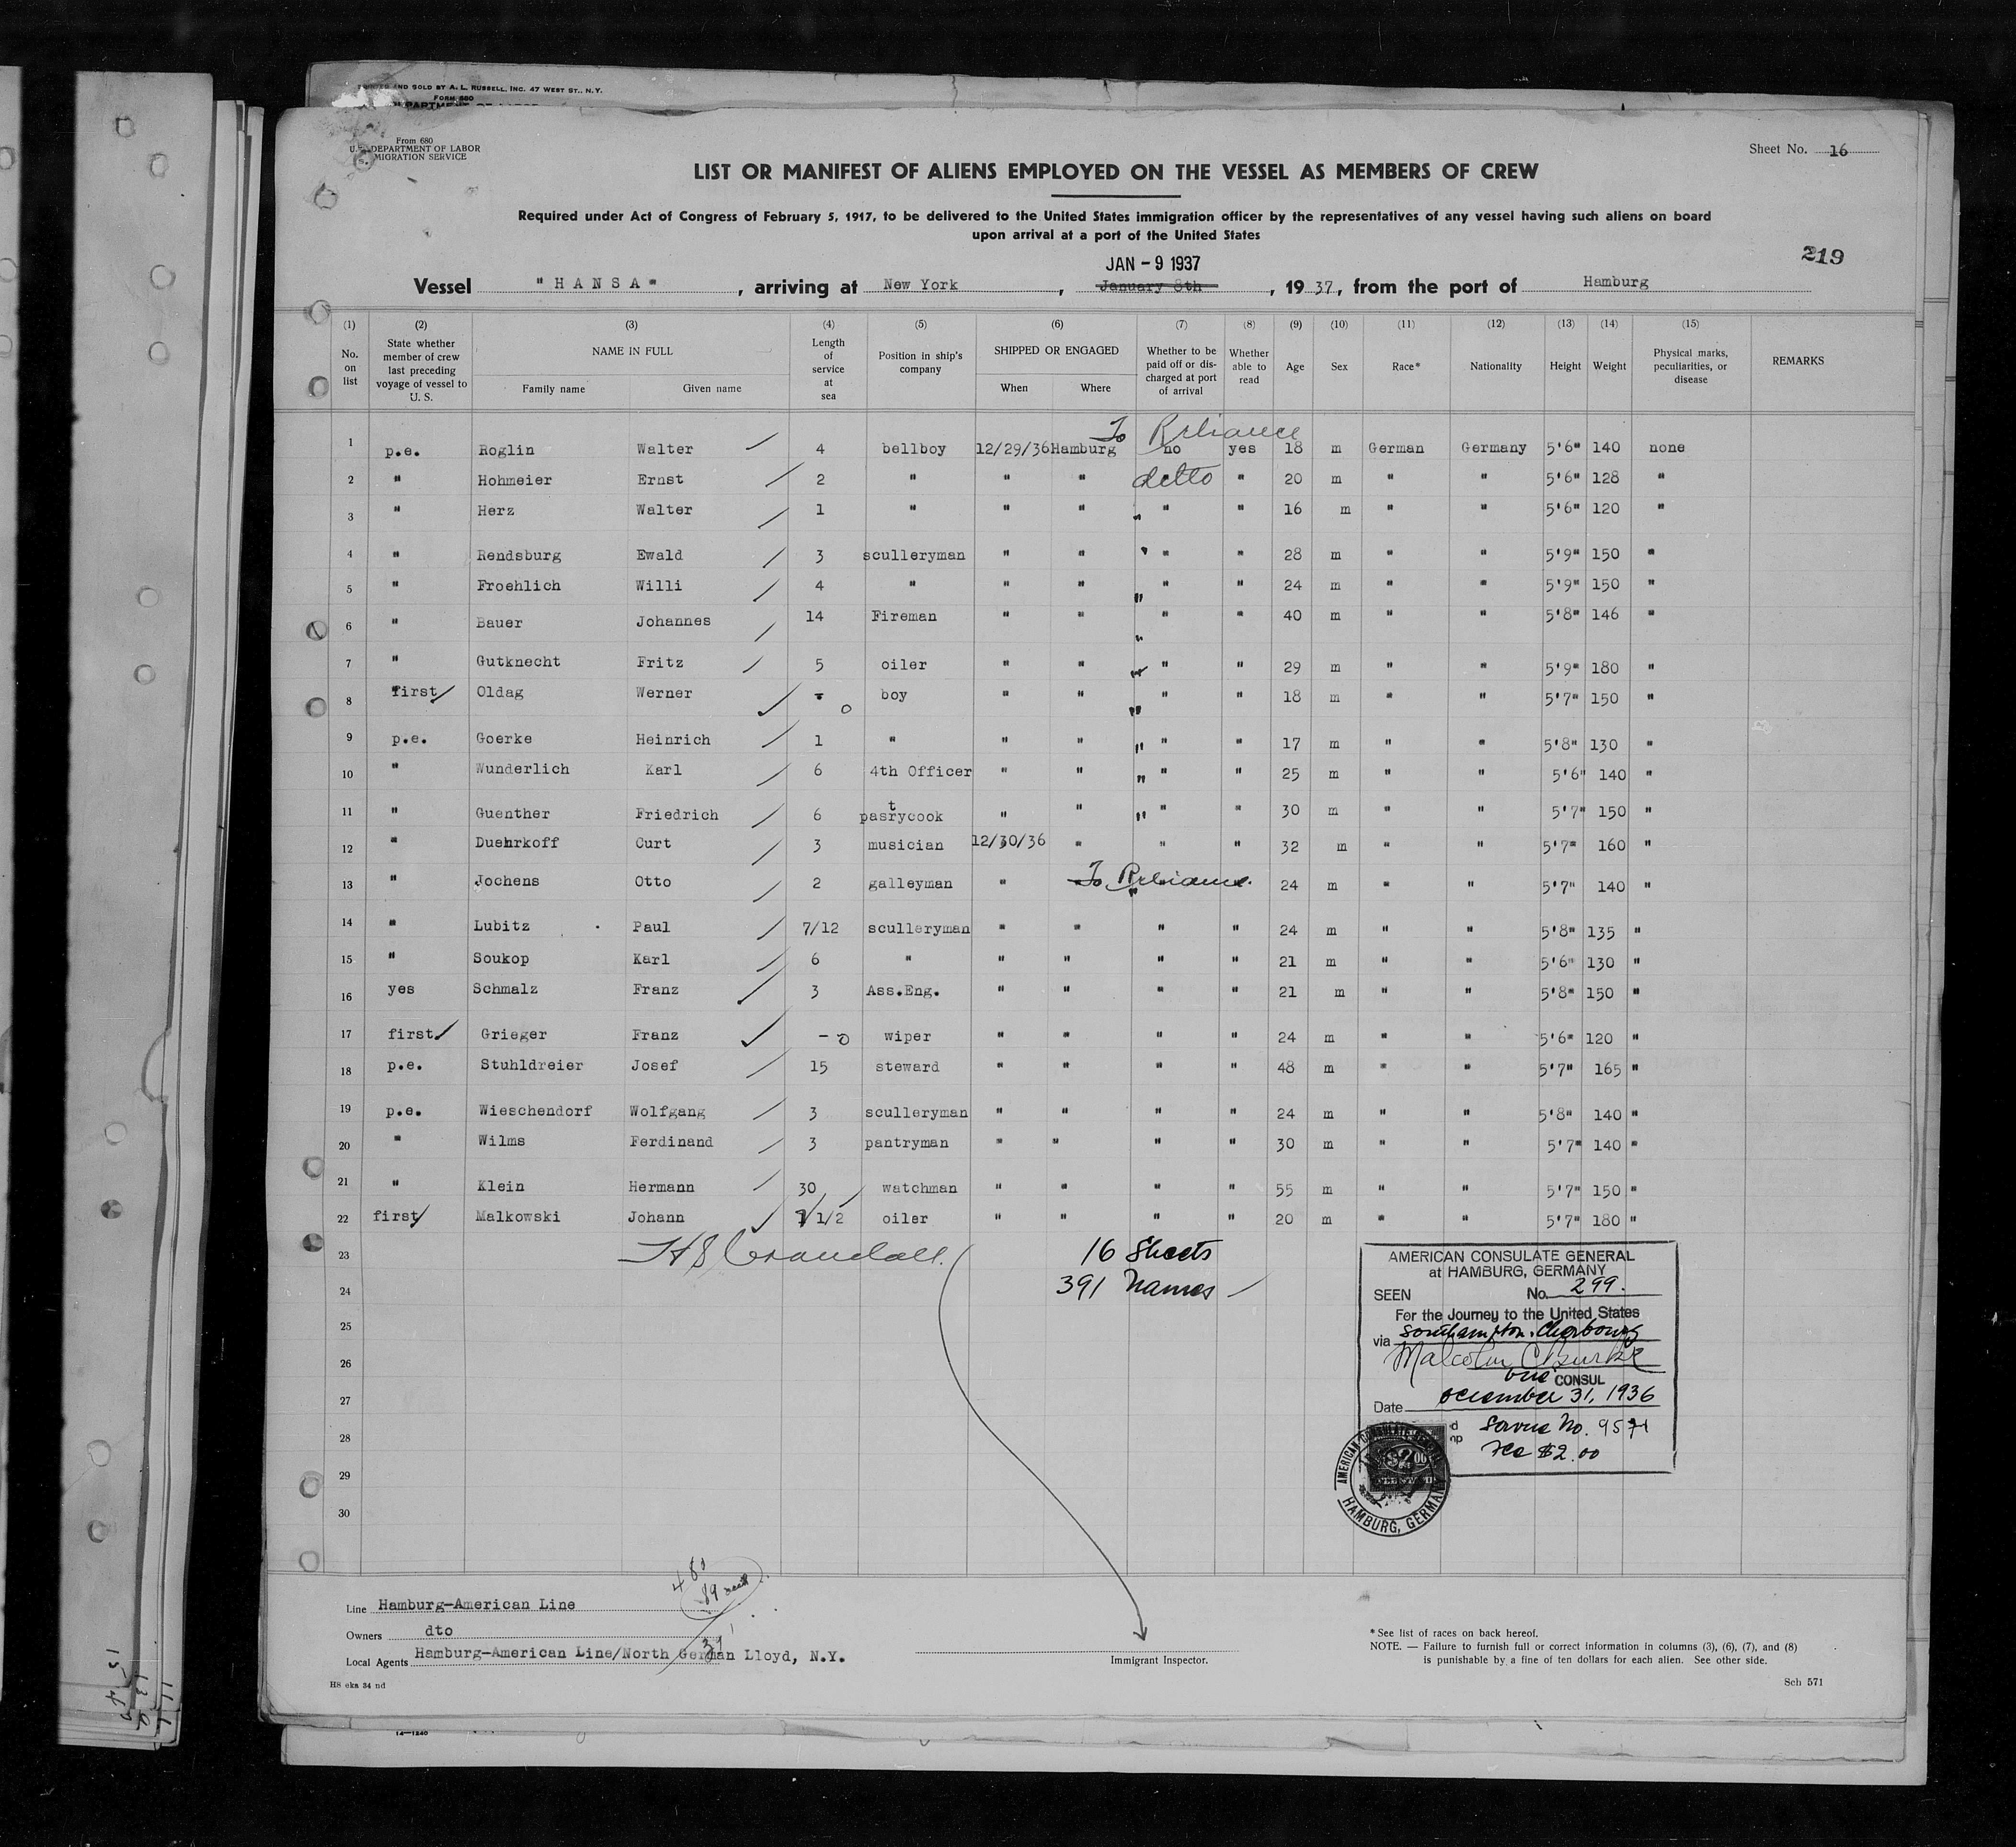 PRINTED AND SOLD BY A. L. RUSSELL, INC. 47 WEST ST., N. Y.
FORM 680
From 680
U. S. DEPARTMENT OF LABOR
IMMIGRATION SERVICE
Sheet No. 16
LIST OR MANIFEST OF ALIENS EMPLOYED ON THE VESSEL AS MEMBERS OF CREW
Required under Act of Congress of February 5, 1917, to be delivered to the United States immigration officer by the representatives of any vessel having such aliens on board
upon arrival at a port of the United States
219
JAN - 9 1937
Vessel "HANSA", arriving at New York, January 8th, 1937, from the port of Hamburg
(1) (2) (3) (4) (5) (6) (7) (8) (9) (10) (11) (12) (13) (14) (15)
No. on list
State whether member of crew last preceding voyage of vessel to U. S.
NAME IN FULL
Family name
Given name
Length of service at sea
Position in ship's company
SHIPPED OR ENGAGED
When
Where
Whether to be paid off or discharged at port of arrival
Whether able to read
Age
Sex
Race*
Nationality
Height
Weight
Physical marks, peculiarities, or disease
REMARKS
To Reliance
1 p.e. Roglin Walter 4 bellboy 12/29/36 Hamburg no yes 18 m German Germany 5'6" 140 none
2 " Hohmeier Ernst 2 " " " ditto " 20 m " " 5'6" 128 "
3 " Herz Walter 1 " " " " " 16 m " " 5'6" 120 "
4 " Rendsburg Ewald 3 sculleryman " " " " 28 m " " 5'9" 150 "
5 " Froehlich Willi 4 " " " " " 24 m " " 5'9" 150 "
6 " Bauer Johannes 14 Fireman " " " " 40 m " " 5'8" 146 "
7 " Gutknecht Fritz 5 oiler " " " " 29 m " " 5'9" 180 "
8 first Oldag Werner - 0 boy " " " " 18 m " " 5'7" 150 "
9 p.e. Goerke Heinrich 1 " " " " " 17 m " " 5'8" 130 "
10 " Wunderlich Karl 6 4th Officer " " " " 25 m " " 5'6" 140 "
11 " Guenther Friedrich 6 pastrycook " " " " 30 m " " 5'7" 150 "
12 " Duehrkoff Curt 3 musician 12/30/36 " " " 32 m " " 5'7" 160 "
13 " Jochens Otto 2 galleyman " To Reliance " 24 m " " 5'7" 140 "
14 " Lubitz Paul 7/12 sculleryman " " " " 24 m " " 5'8" 135 "
15 " Soukop Karl 6 " " " " " 21 m " " 5'6" 130 "
16 yes Schmalz Franz 3 Ass.Eng. " " " " 21 m " " 5'8" 150 "
17 first Grieger Franz - 0 wiper " " " " 24 m " " 5'6" 120 "
18 p.e. Stuhldreier Josef 15 steward " " " " 48 m " " 5'7" 165 "
19 p.e. Wieschendorf Wolfgang 3 sculleryman " " " " 24 m " " 5'8" 140 "
20 " Wilms Ferdinand 3 pantryman " " " " 30 m " " 5'7" 140 "
21 " Klein Hermann 30 watchman " " " " 55 m " " 5'7" 150 "
22 first Malkowski Johann 1/2 oiler " " " " 20 m " " 5'7" 180 "
23 H S Crandall. 16 Sheets
24 391 Names
25
26
27
28
29
30
AMERICAN CONSULATE GENERAL
at HAMBURG, GERMANY
SEEN No. 299.
For the Journey to the United States
via Southampton. Cherbourg
Malcolm C Burke
Vice CONSUL
Date December 31, 1936
Service No. 9571
Fee $2.00
AMERICAN CONSULATE GENERAL
HAMBURG, GERMANY
Line Hamburg-American Line
Owners dto
Local Agents Hamburg-American Line/North German Lloyd, N.Y.
Immigrant Inspector.
* See list of races on back hereof.
NOTE. — Failure to furnish full or correct information in columns (3), (6), (7), and (8)
is punishable by a fine of ten dollars for each alien. See other side.
H8 eka 34 nd
Sch 571
14—1240